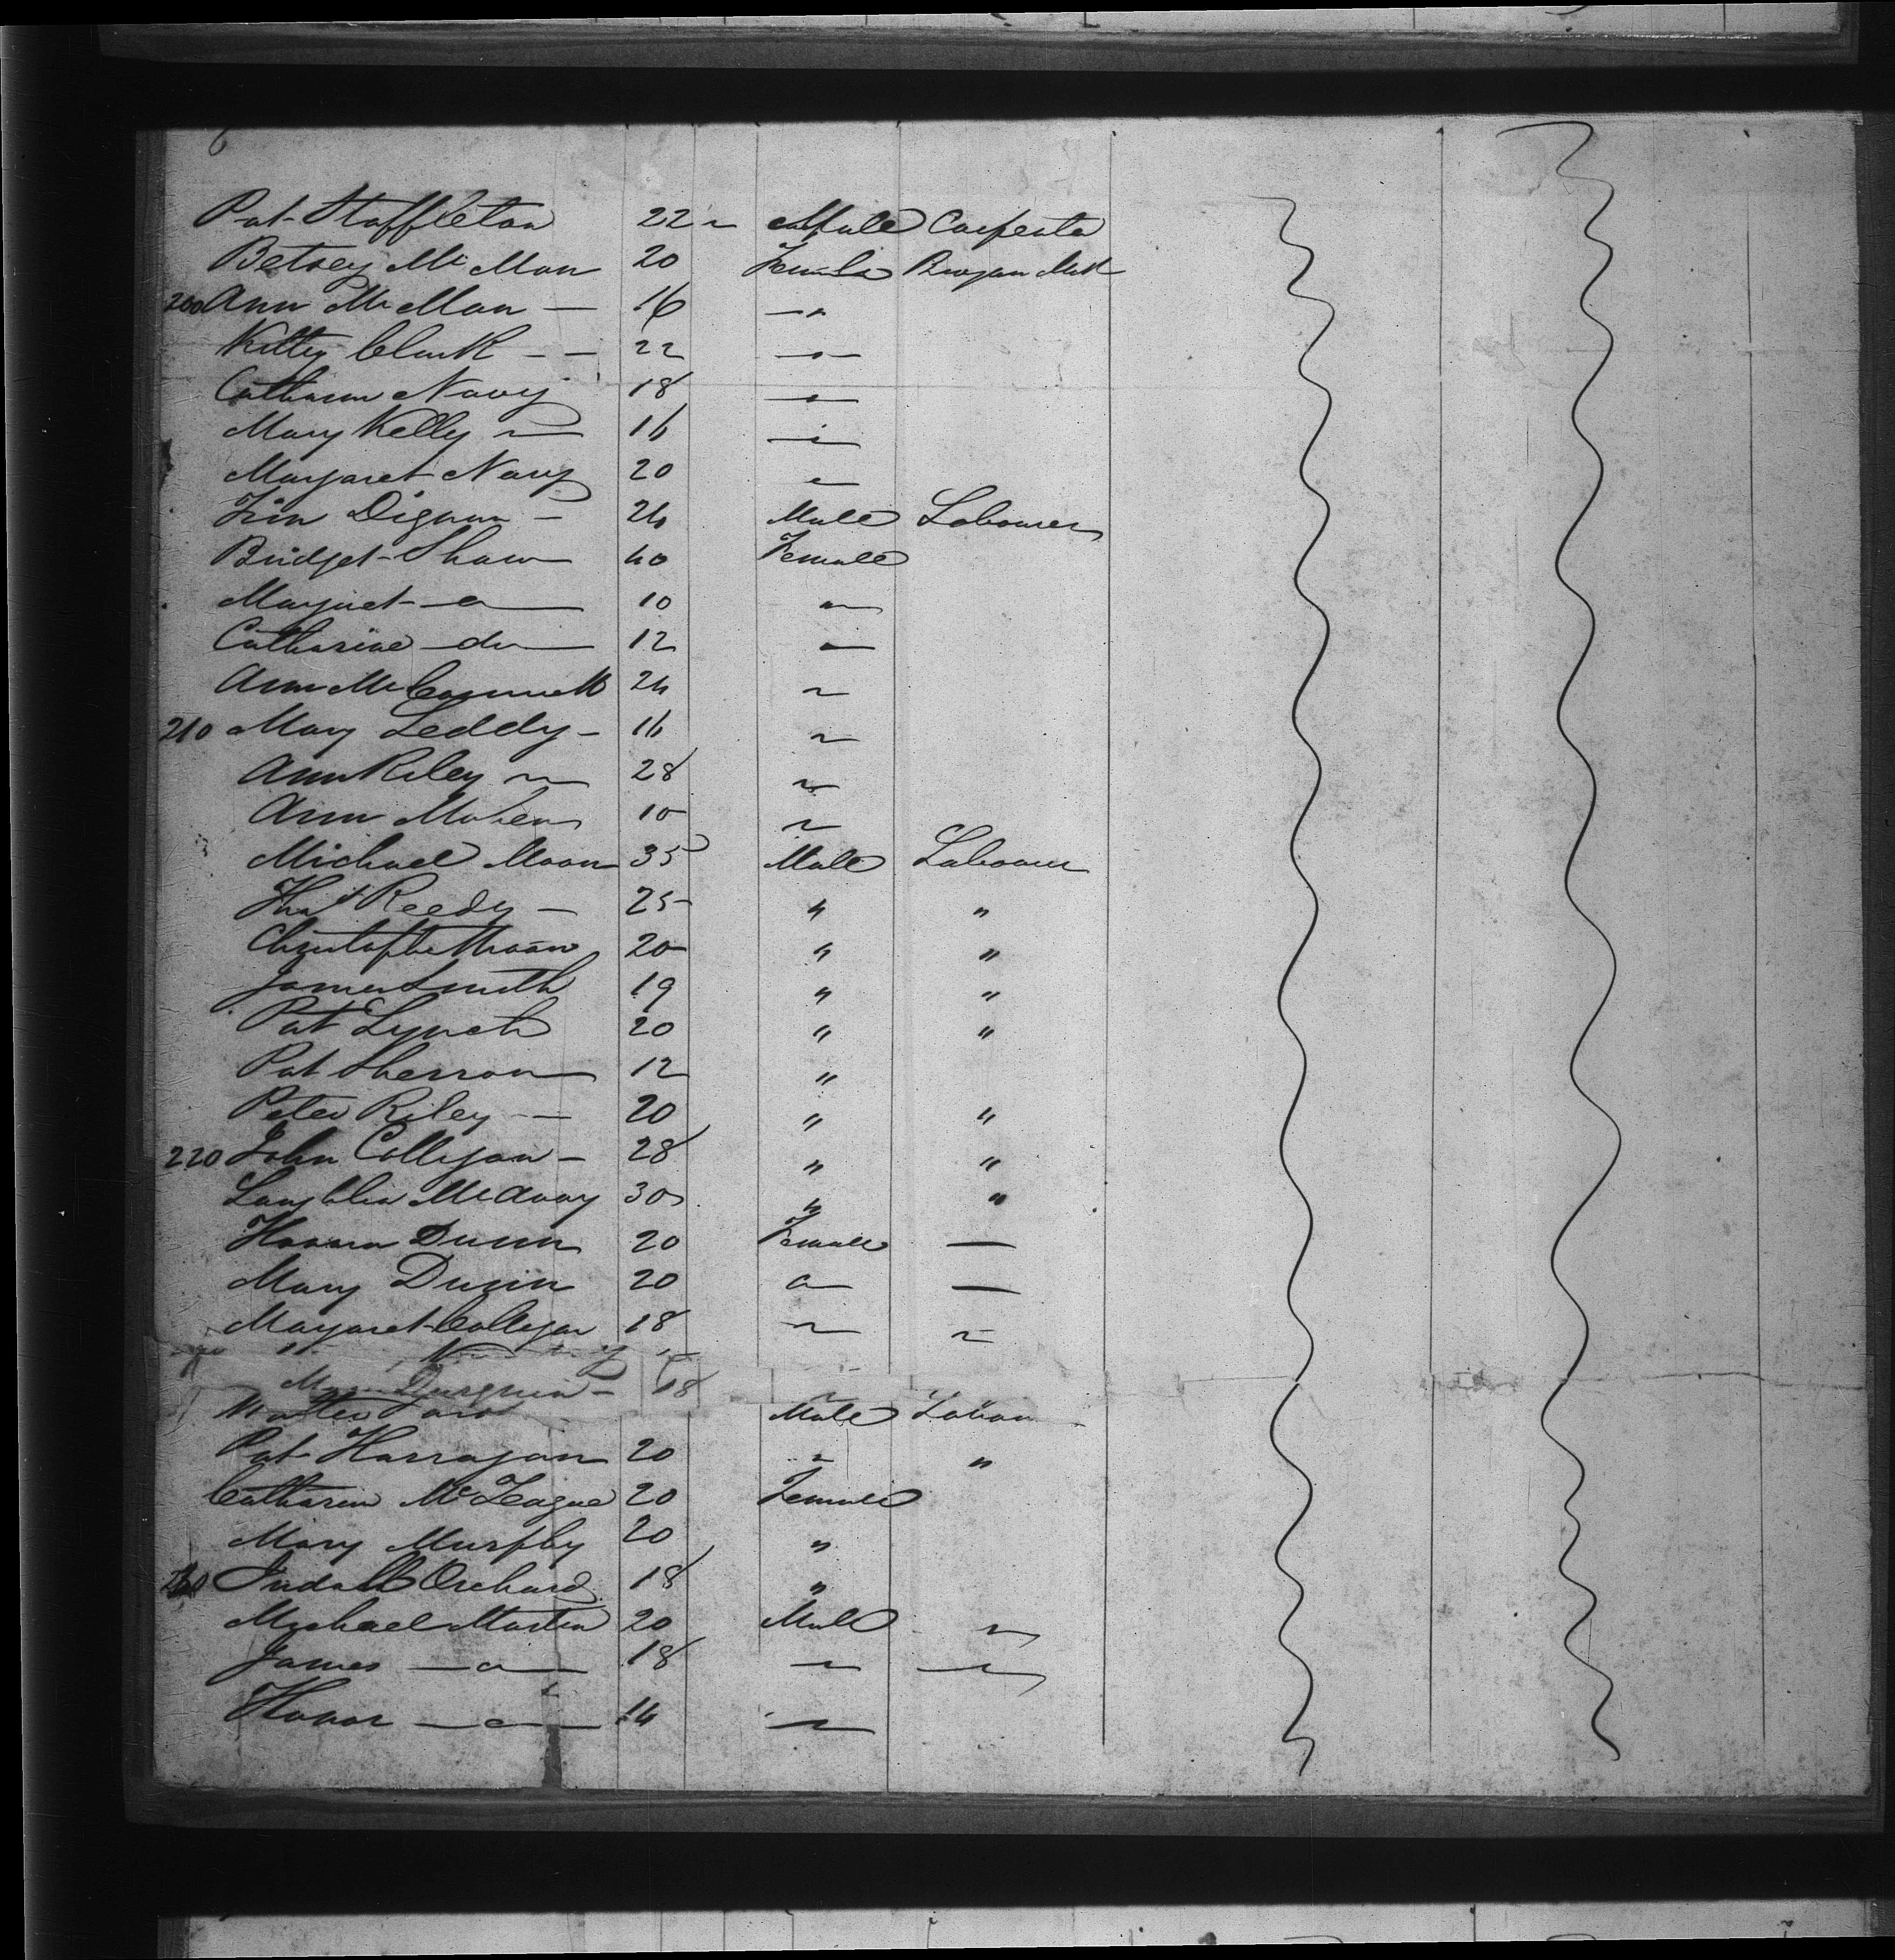 6
Pat Staffleton 22 ~ Male Carpenter
Betsey Mc Man 20 Female
200 Ann Mc Man — 16 — " 
Kitty Clark — — 22 — " —
Catharine Navy 18 — " —
Mary Kelly — 16 — " —
Margaret Navy 20 "
Fin Dignan — 24 Male Labourer
Bridget Shaw 40 Female
Margaret — do — 10 "
Catharine — do — 12 "
Ann McConnell 24 "
210 Mary Leddy — 16 "
Ann Riley — 28 "
Ann Mahen 10 "
Michael Moan 35 Male Labourer
Thos Reedy — 25 " "
Christopher Moan 20 " "
James Smith 19 " "
Pat Lynch 20 " "
Pat Sherron 12 "
Peter Riley — 20 " "
220 John Colligan — 28 " "
Laughlin McAvoy 30 " "
Honora Dunn 20 Female —
Mary Dunn 20 " —
Margaret Colligan 18 " "
Durgnin — 18 "
Male Labour
Pat Harragan 20 " "
Catharine McTeague 20 Female
Mary Murphy 20 "
Orchard 18 "
Michael Martin 20 Male "
James — do — 18 " "
Honor — do — 14 "